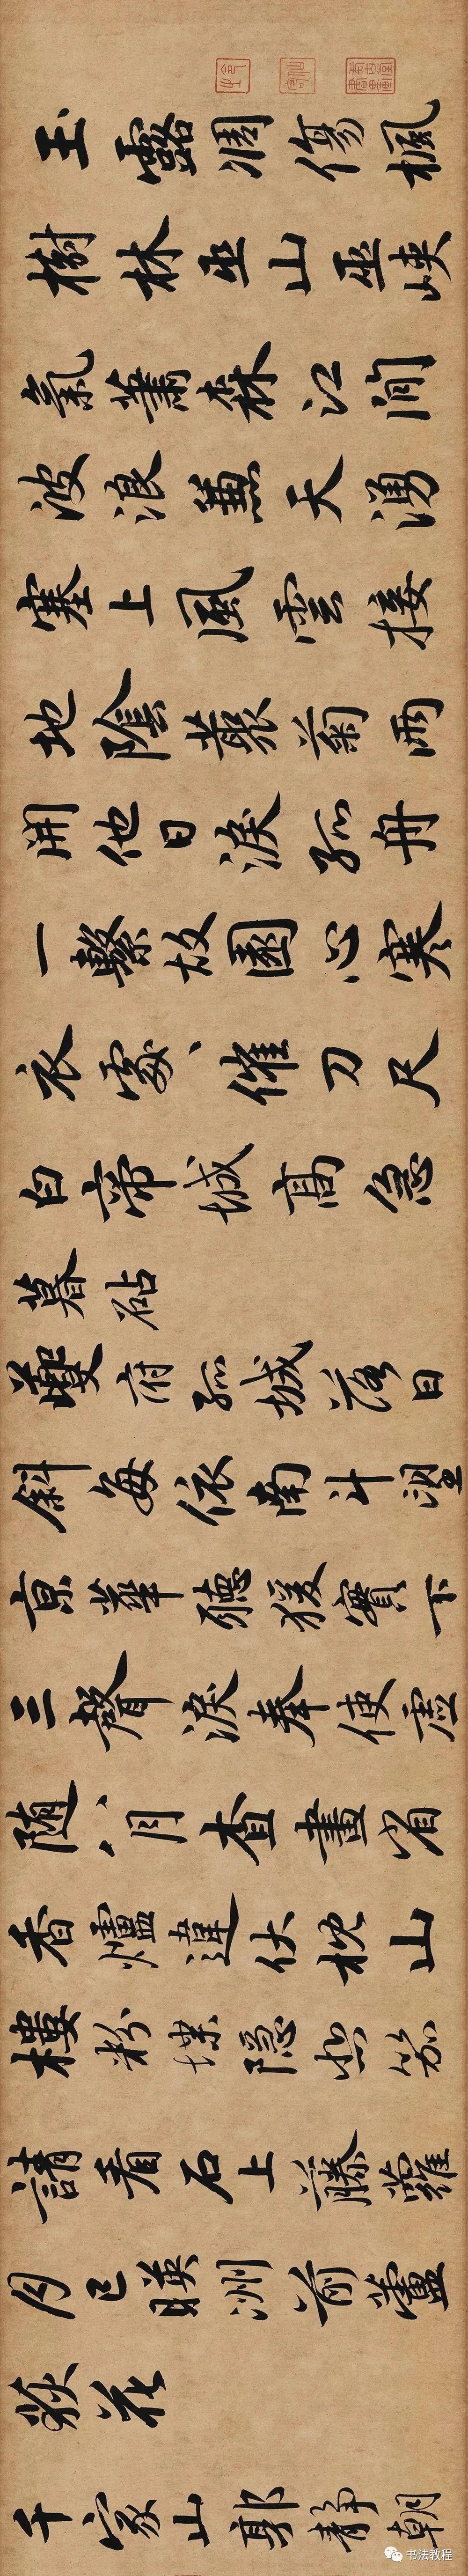 玉露凋傷楓
樹林巫山巫峽
氣蕭森江間
波浪兼天湧
塞上風雲接
地陰叢菊兩
開他日淚孤舟
一繫故園心寒
衣處、催刀尺
白帝城高急
暮砧
夔府孤城落日
斜每依南斗望
京華聽猿實下
三聲淚奉使虛
随八月查畫省
香爐違伏枕山
樓粉堞隱悲笳
請看石上藤蘿
月已暎洲前蘆
荻花
千家山郭靜朝
书法教程